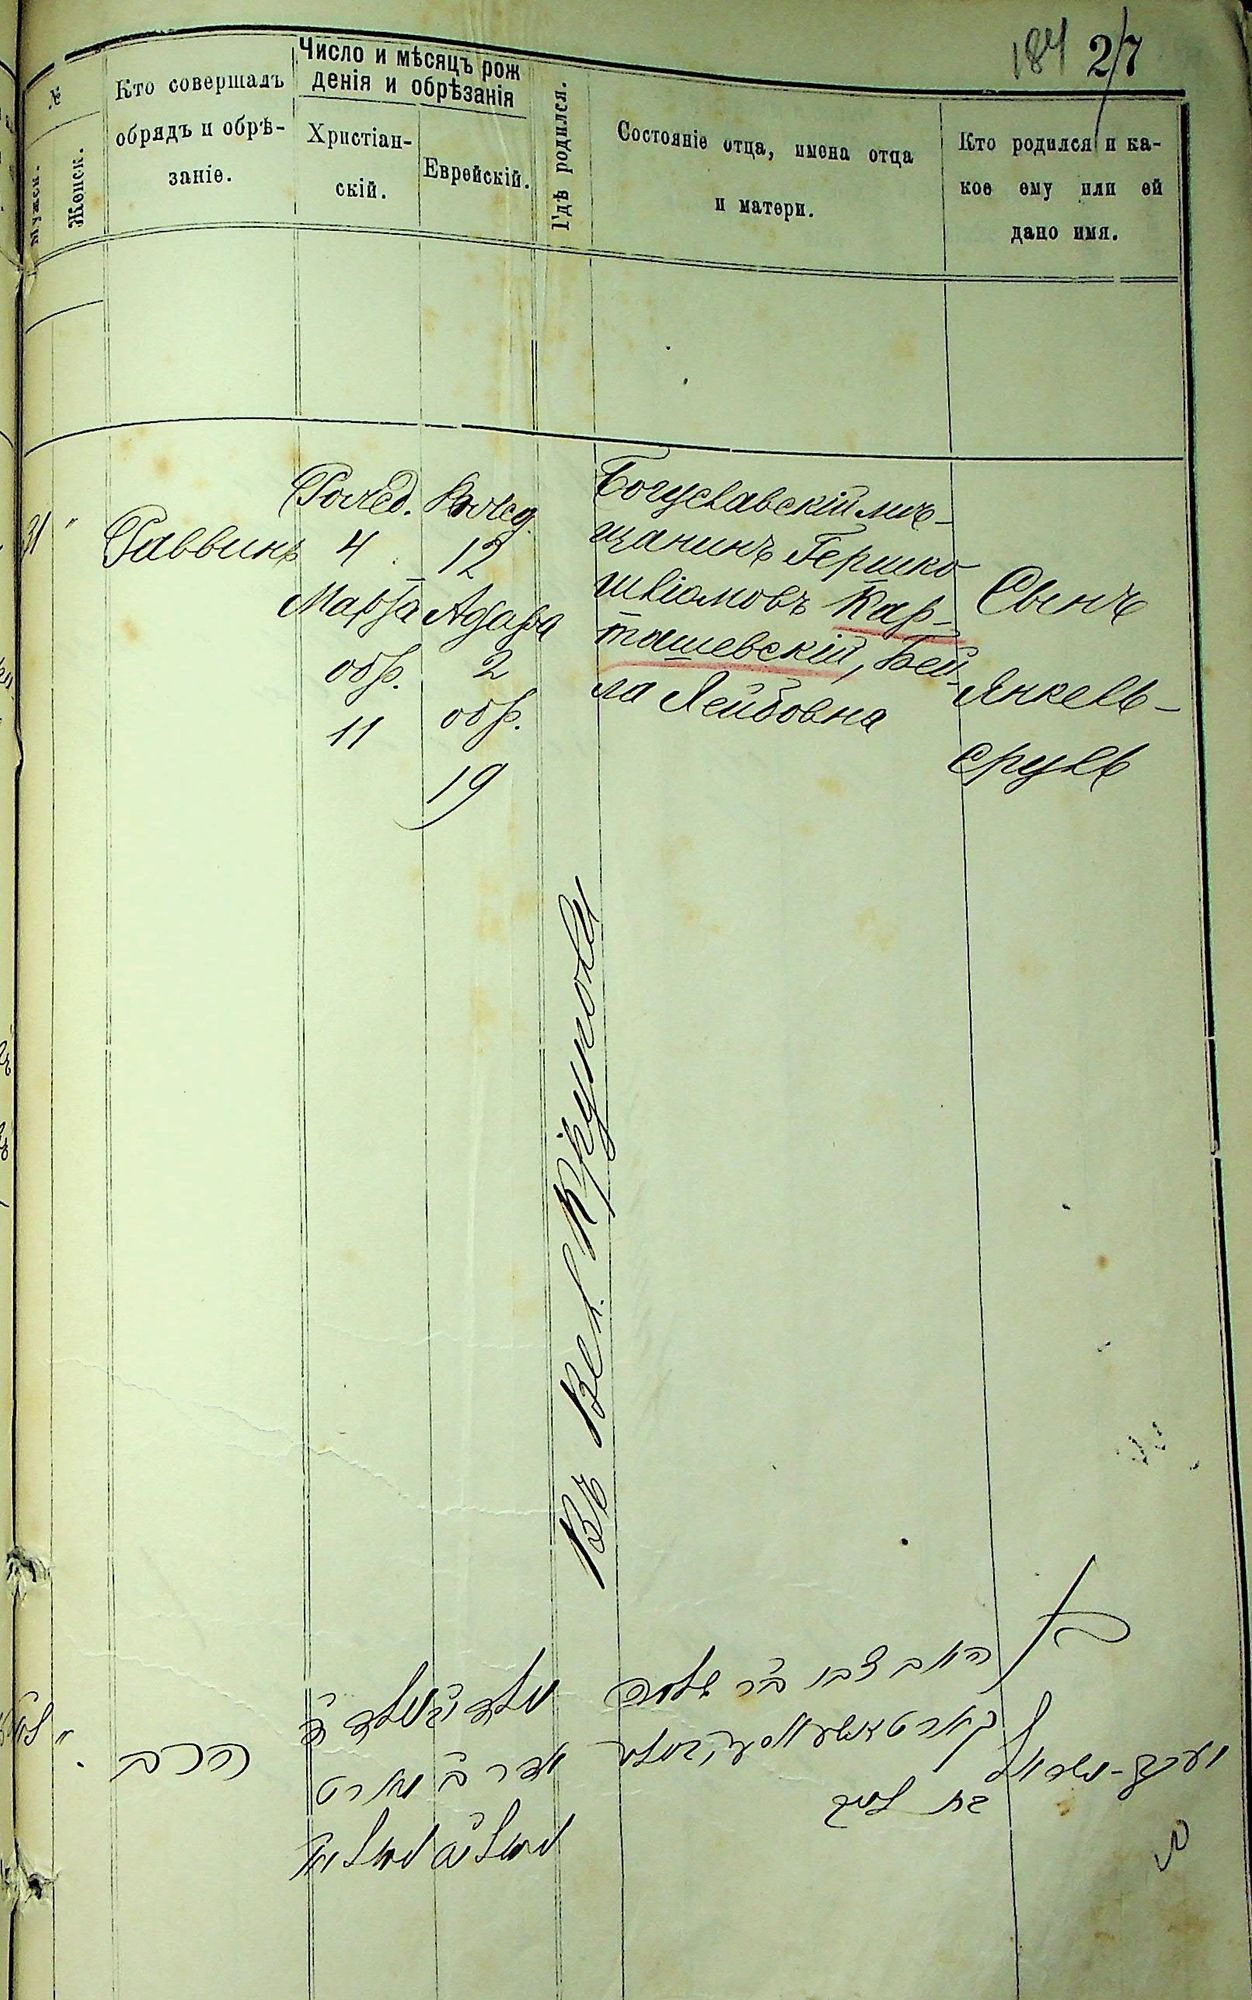 184 27
№
Мужск.
Женск.
Кто совершалъ
обрядъ и обрѣ-
заніе.
Число и мѣсяцъ рож
денія и обрѣзанія
Христіан-
скій.
Еврейскій.
Гдѣ родился.
Состояніе отца, имена отца
и матери.
Кто родился и ка-
кое ему или ей
дано имя.
31 "
Раввинъ
4
Марта
обр.
11
12
Адара
2
обр.
19
Въ Вел. Круполѣ
Богуславскій мѣ-
щанинъ Гершко
Шліомовъ Кар-
ташевскій, Бей-
ла Лейбовна
Сынъ
Янкель-
Сруль
הרב
האב צבי ב״ר שלמה
יעקב-ישראל